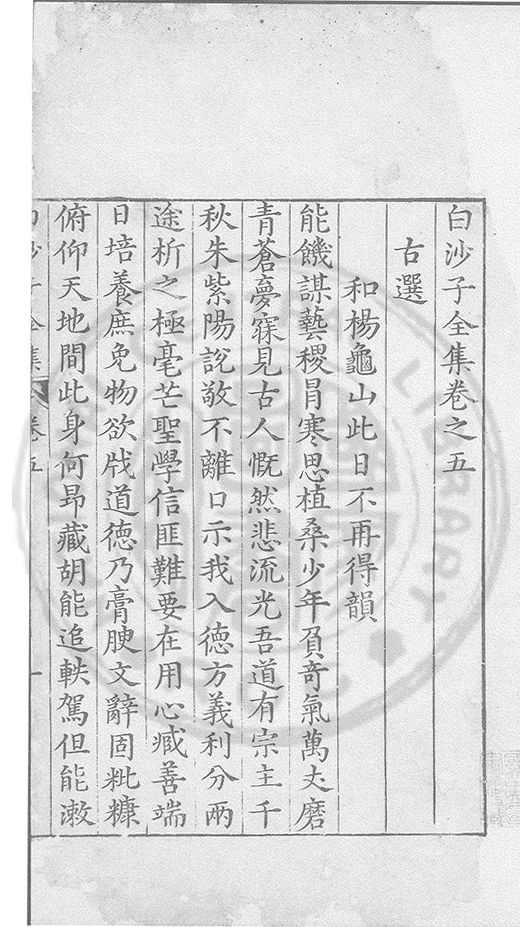 白沙子全集卷之五
古選
和楊龜山此日不再得韻
能饑謀藝稷冐寒思植桑少年負奇氣萬丈磨
青蒼夢寐見古人慨然悲流光吾道有宗主千
秋朱紫陽說敬不離口示我入德方義利分兩
途析之極毫芒聖學信匪難要在用心臧善端
日培養庶免物欲戕道德乃膏腴文辭固粃糠
俯仰天地間此身何昻藏胡能追軼駕但能漱
白沙子全集 卷五 一
LIBRARY